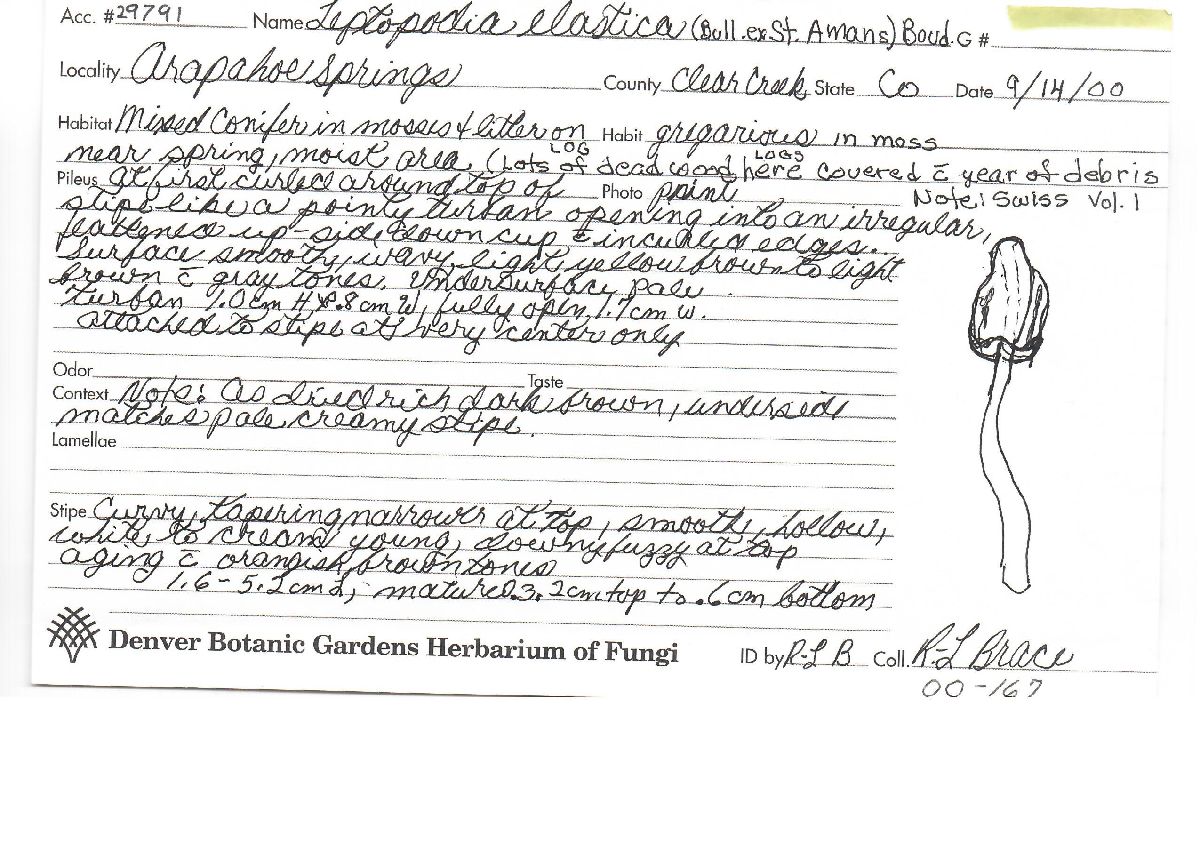 Acc. #29791 Name Leptopodia elastica (Bull. ex St. Amans) Boud. G #
Locality Arapahoe Springs County Clear Creek State Co Date 9/14/00
Habitat Mixed Conifer in mosses & litter on Habit grigarious in moss
LOG LOGS
near spring, moist area. (Lots of dead wood here covered c̄ year of debris
Pileus at first curled around top of Photo print Note: Swiss Vol. 1
stipe like a pointy turban opening into an irregular,
flattened up-side down cup c̄ incurled edges.
Surface smooth, wavy, light yellow brown to light
brown c̄ gray tones. Undersurface pale
Turban 1.0cm H x .8cm W, fully open, 1.7cm w.
attached to stipe at very center only
Odor Taste
Context Note: As dried rich dark brown, underside
matches pale creamy stipe.
Lamellae
Stipe Curvy, tapering narrower at top, smooth, hollow,
white to cream young, downy fuzzy at top
aging c̄ orangish brown tones
1.6-5.2cm L, mature .2cm top to .6cm bottom
Denver Botanic Gardens Herbarium of Fungi ID by R-L B Coll. R-L Brace
00-167